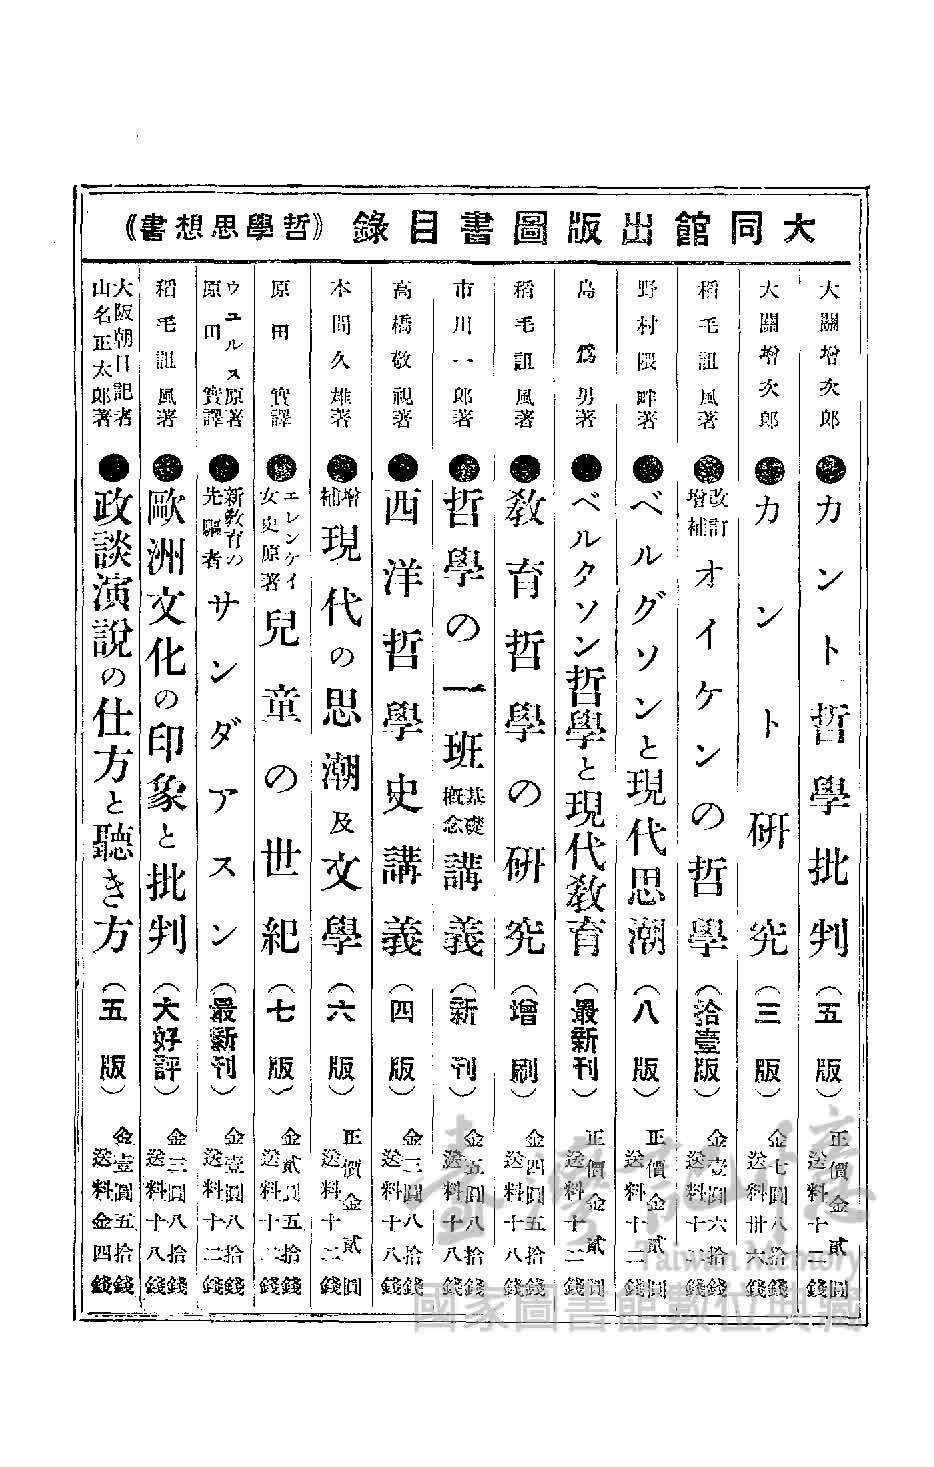 大同館出版圖書目錄《哲學思想書》
大關增次郎 ●カント哲學批判（五版）正價金貳圓 送料十二錢
大關增次郎 ●カント研究（三版）金七圓八拾錢 送料卅六錢
稻毛詛風著 ●改訂增補オイケンの哲學（拾壹版）金壹圓六拾錢 送料十二錢
野村隈畔著 ●ベルグソンと現代思潮（八版）正價金貳圓 送料十二錢
島爲男著 ●ベルクソン哲學と現代敎育（最新刊）正價金貳圓 送料十二錢
稻毛詛風著 ●敎育哲學の硏究（增刷）金四圓五拾錢 送料十八錢
市川一郎著 ●哲學の一班基礎概念講義（新刊）金五圓八拾錢 送料十八錢
高橋敬視著 ●西洋哲學史講義（四版）金三圓八拾錢 送料十八錢
本間久雄著 ●增補現代の思潮及文學（六版）正價金貳圓 送料十二錢
原田實譯 ●エレンケイ女史原著兒童の世紀（七版）金貳圓五拾錢 送料十二錢
ウエルス原著 原田實譯 ●新敎育の先驅者サンダアスン（最新刊）金壹圓八拾錢 送料十二錢
稻毛詛風著 ●歐洲文化の印象と批判（大好評）金三圓八拾錢 送料十八錢
大阪朝日記者 山名正太郎著 ●政談演說の仕方と聽き方（五版）金壹圓五拾錢 送料金四錢
臺灣記憶
Taiwan Memory
國家圖書館數位典藏